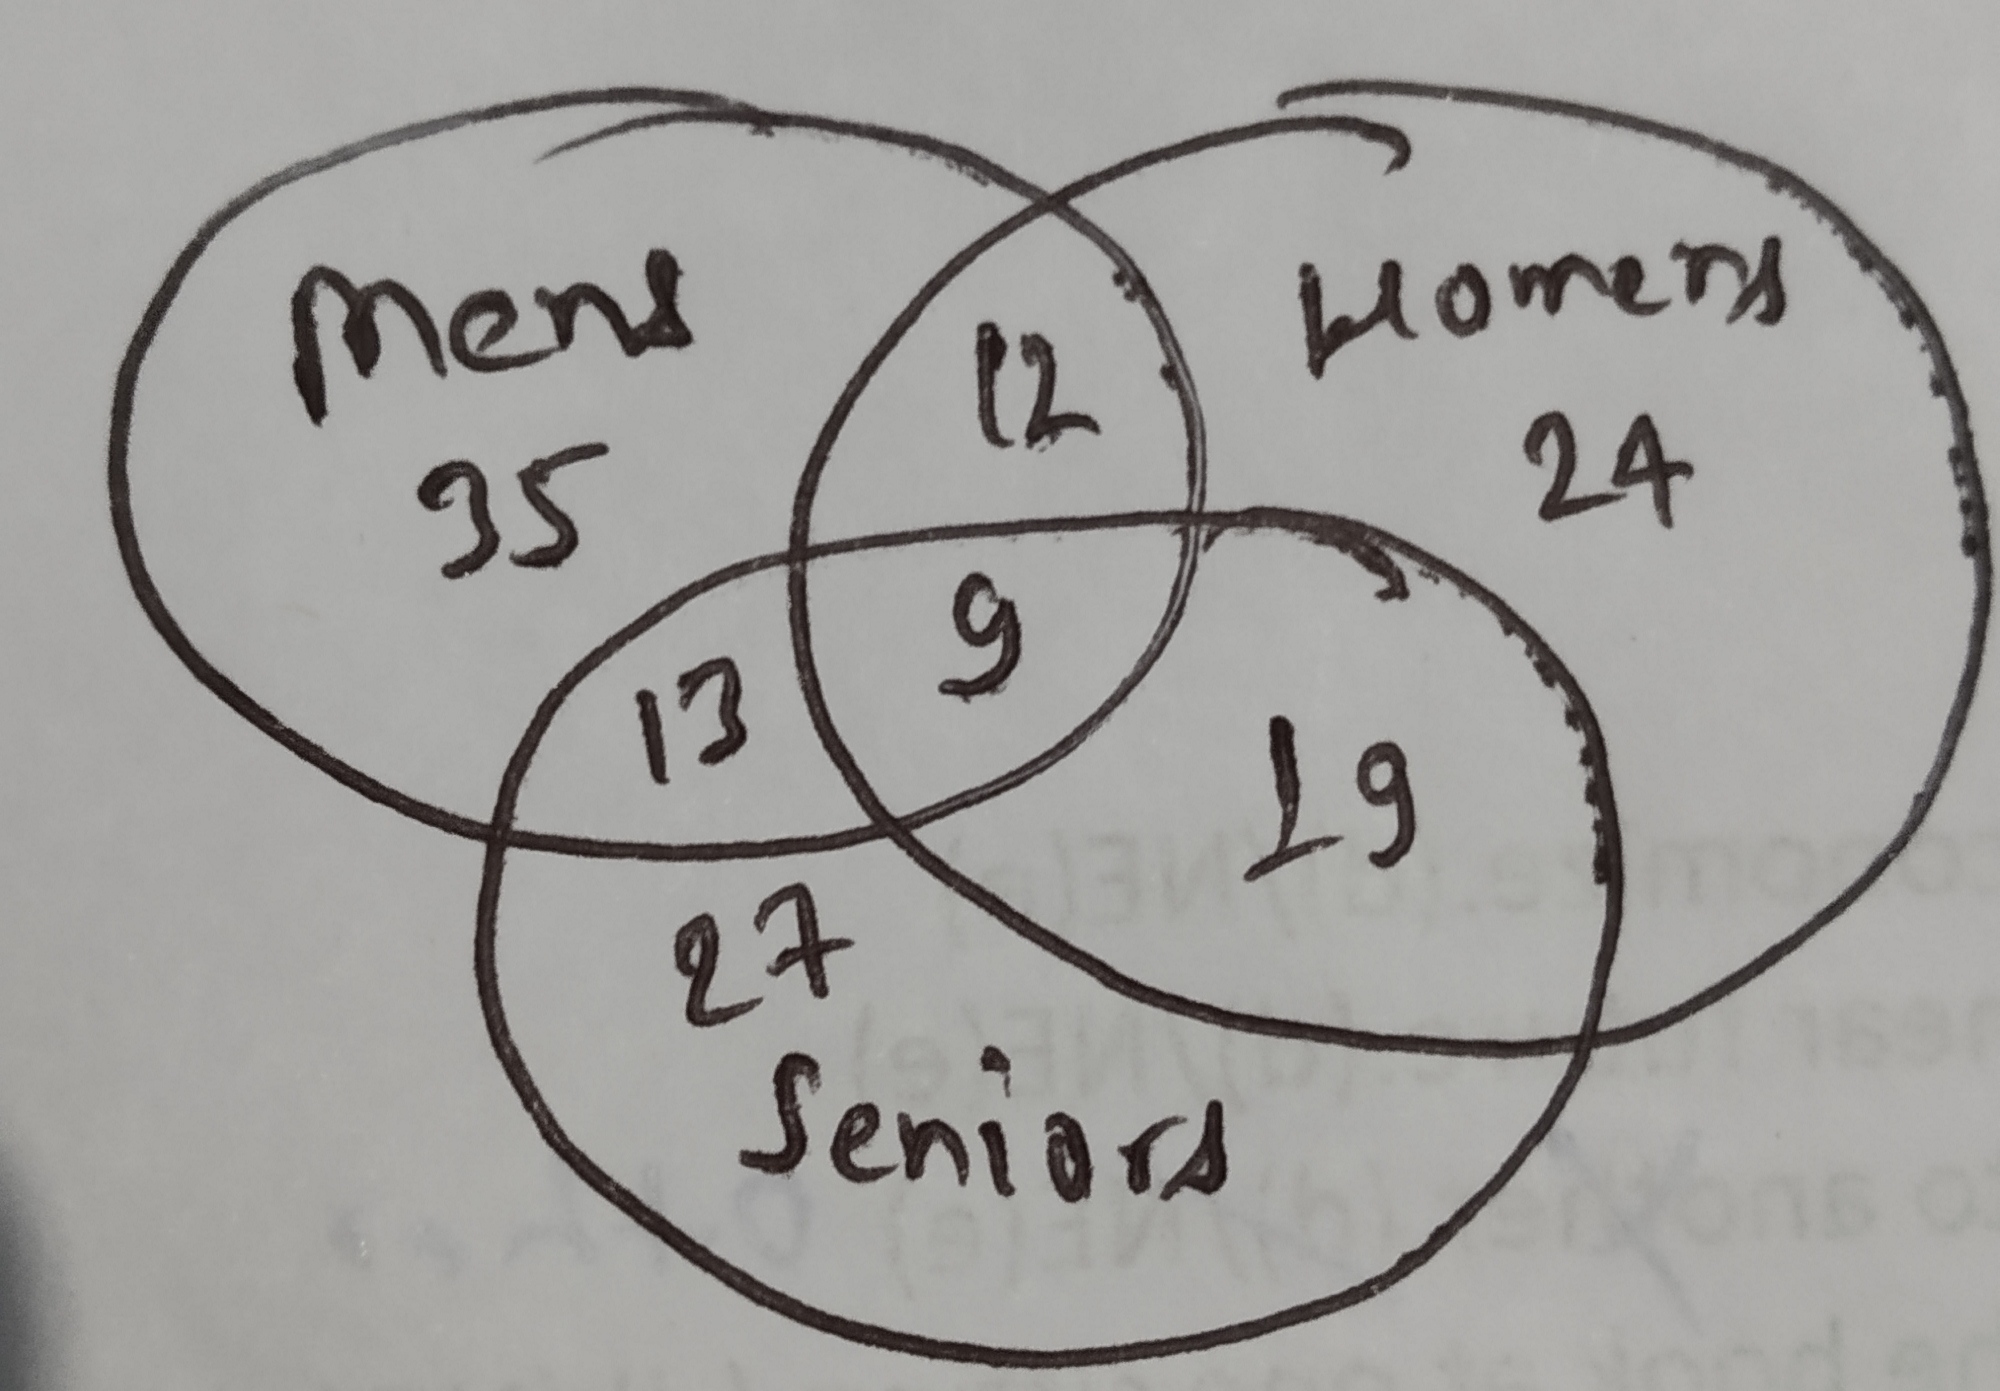 Mens
Womens
12
35
24
9
13
19
27
Seniors